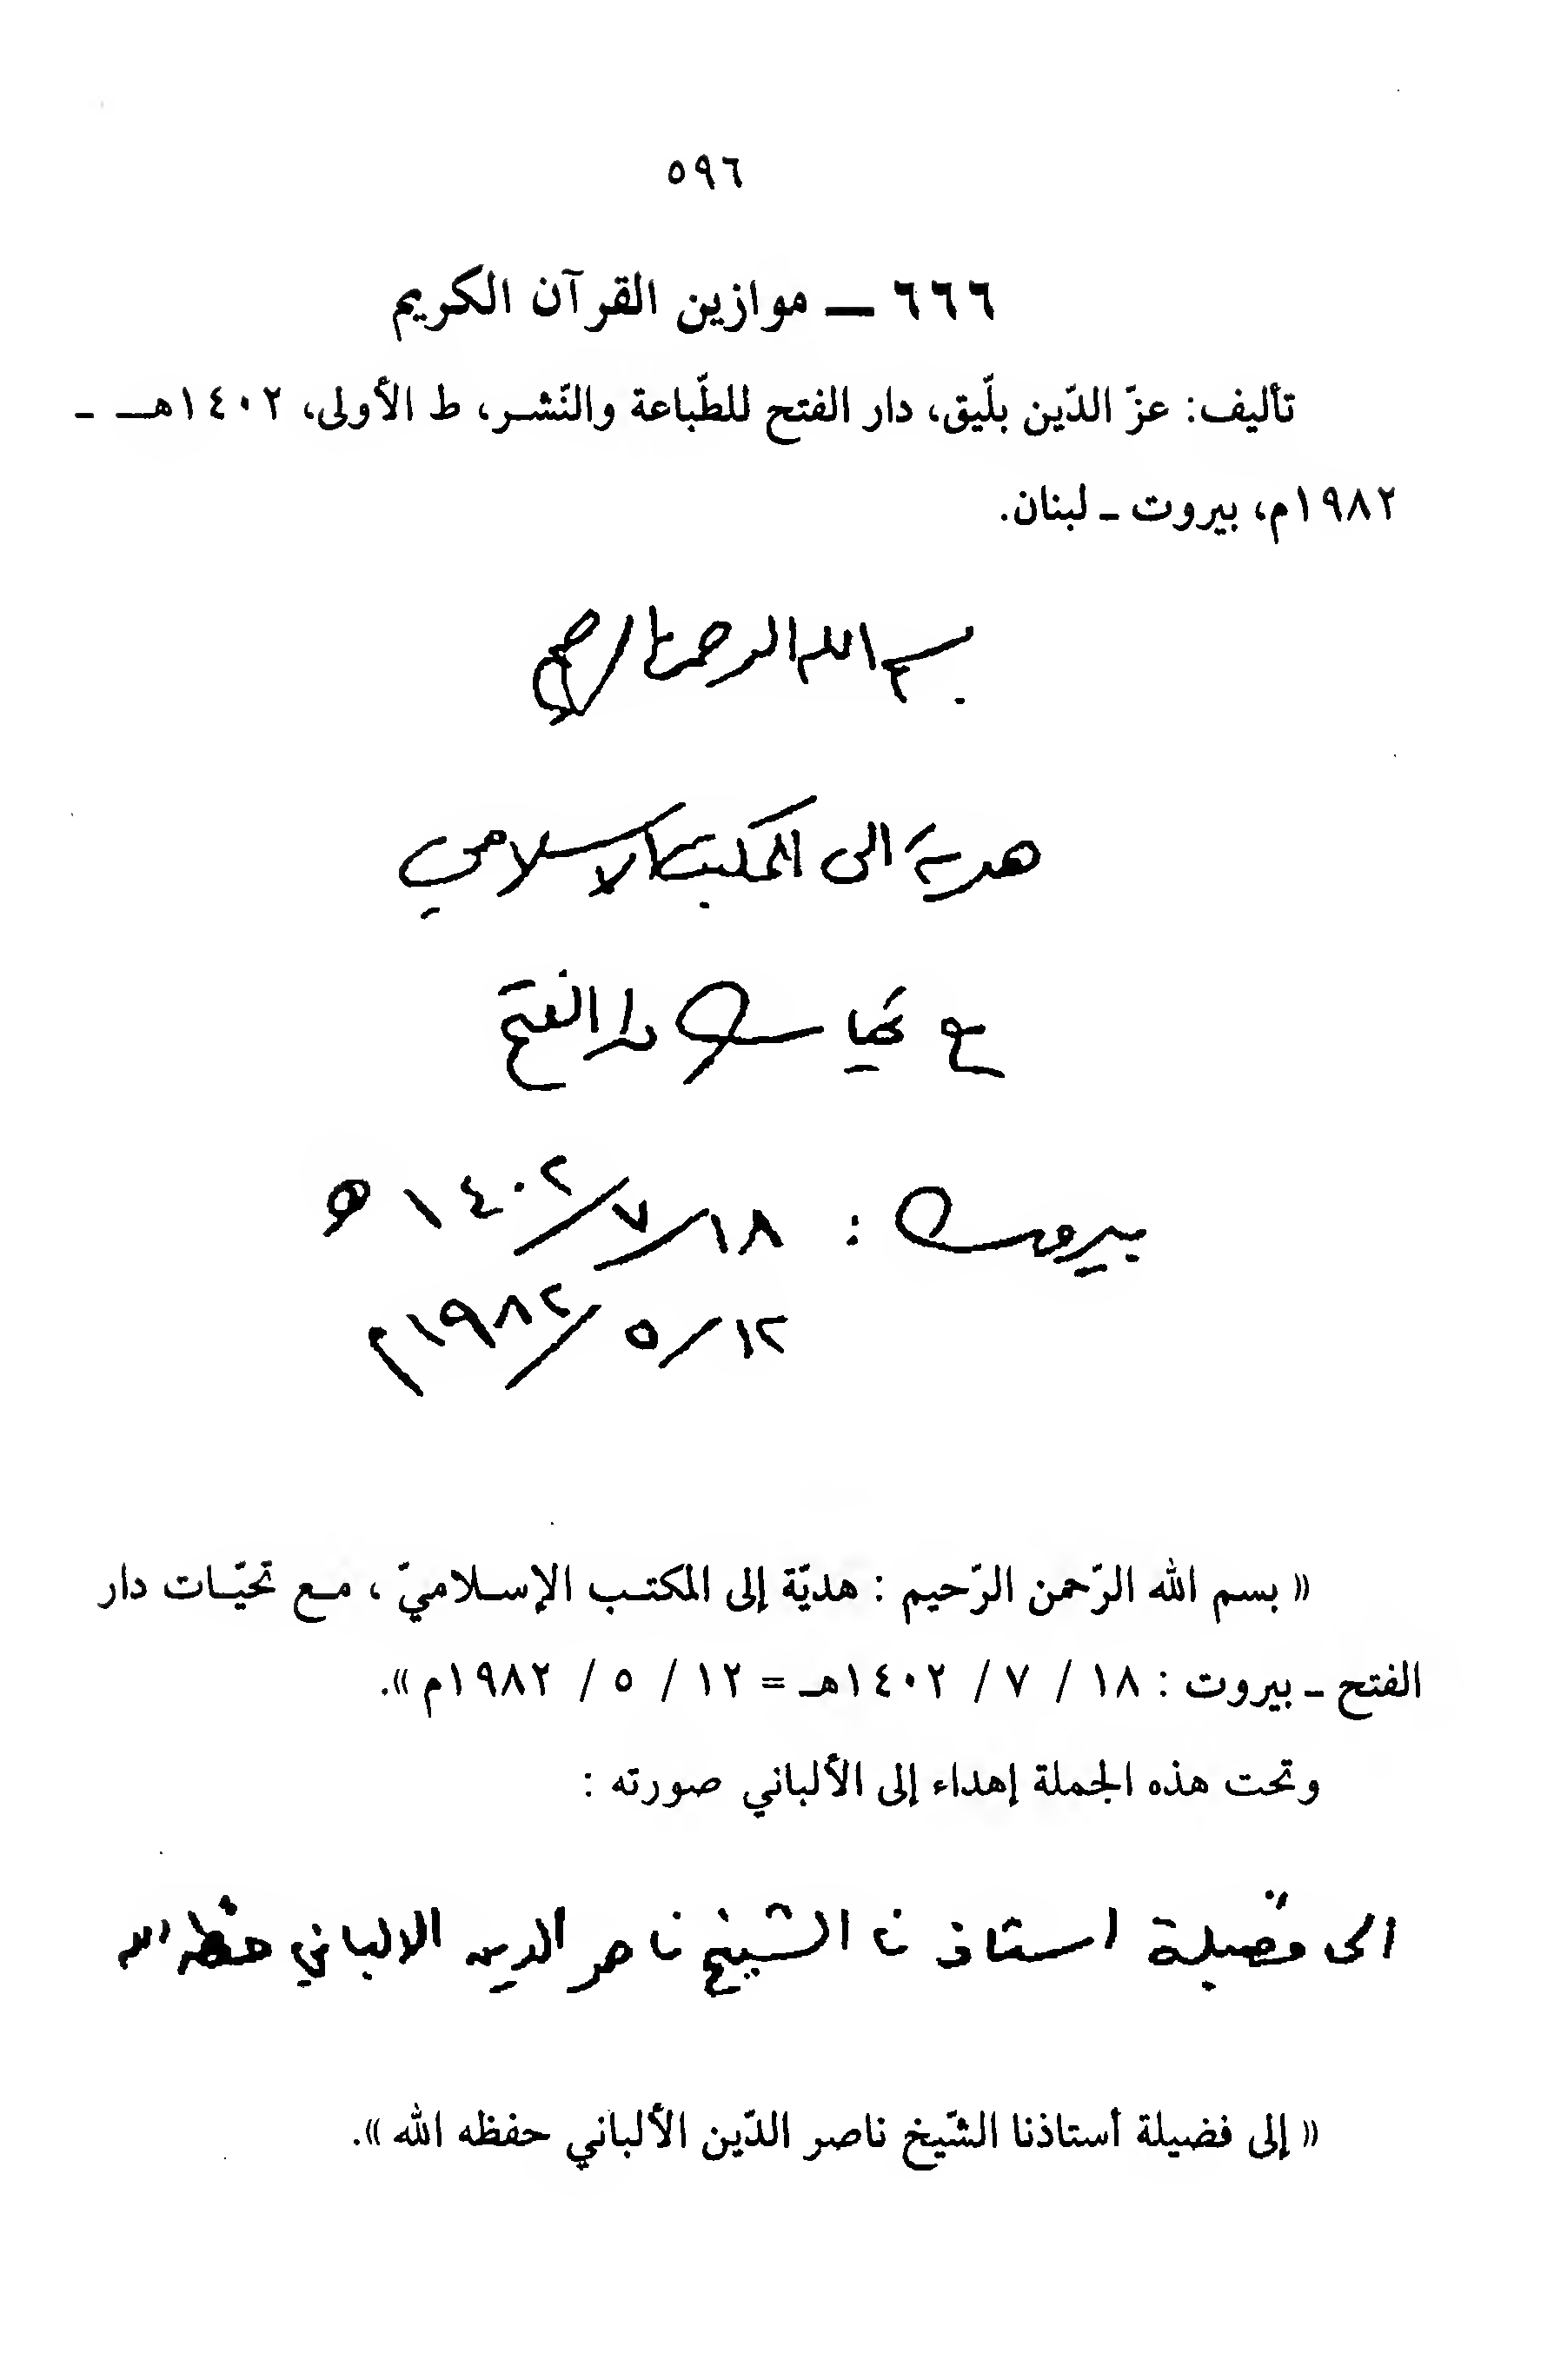 ٥٩٦
٦٦٦ — موازين القرآن الكريم
تأليف: عزّ الدّين بلّيق، دار الفتح للطّباعة والنّشر، ط الأولى، ١٤٠٢هـ -
١٩٨٢م، بيروت - لبنان.
بسم الله الرحمن الرحيم
هدية الى المكتب الاسلامي
مع تحيات دار الفتح
بيروت : ١٨/٧/١٤٠٢ هـ
١٢/٥/١٩٨٢م
« بسم الله الرّحمن الرّحيم : هديّة إلى المكتب الإسلاميّ ، مع تحيّات دار
الفتح - بيروت : ١٨ / ٧ / ١٤٠٢هـ = ١٢ / ٥ / ١٩٨٢م ».
وتحت هذه الجملة إهداء إلى الألباني صورته :
الى فضيلة استاذنا الشيخ ناصر الدين الالباني حفظه الله
« إلى فضيلة أستاذنا الشّيخ ناصر الدّين الألباني حفظه الله ».